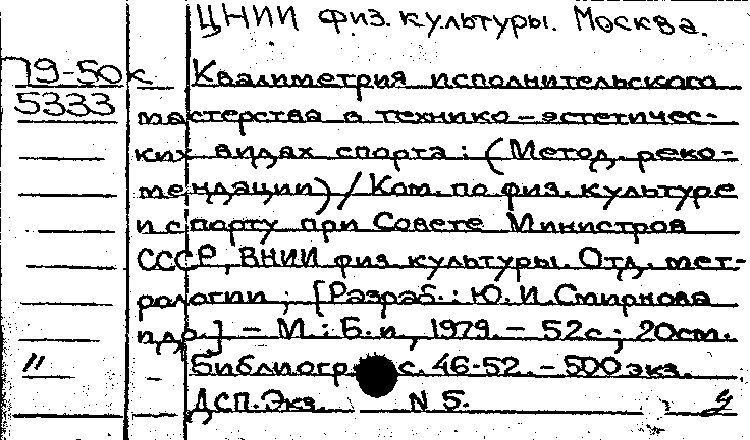 ЦНИИ физ. культуры. Москва.
79-50к Квалиметрия исполнительского
5333 мастерства в технико-эстетичес-
ких видах спорта: (Метод. реко-
мендации) / Ком. по физ. культуре
и спорту при Совете Министров
СССР, ВНИИ физ. культуры. Отд. мет-
рологии; [Разраб.: Ю. И. Смирнова
и др.] – М.: Б. и, 1979. – 52с; 20см.
" Библиогр. с. 46-52. – 500 экз.
ДСП. Экз. N 5.